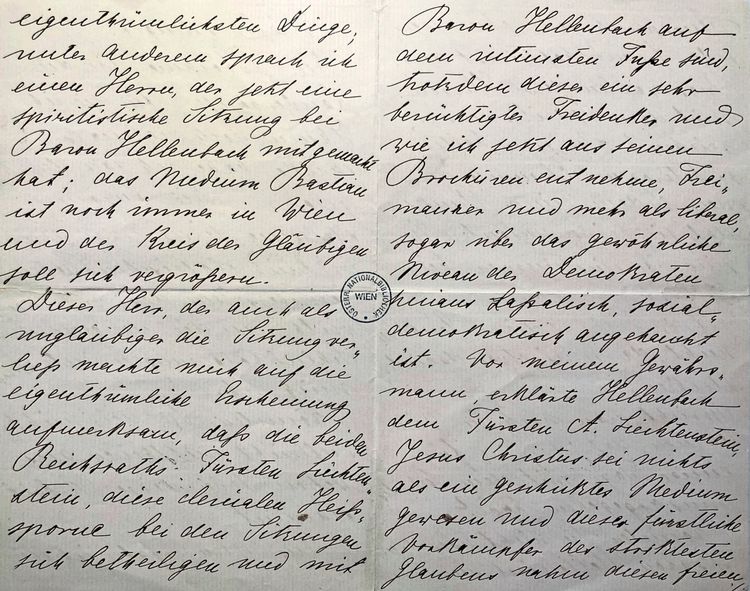 eigenthümlichsten Dinge;
unter Anderem sprach ich
einen Herrn, der jetzt eine
spiritistische Sitzung bei
Baron Hellenbach mitgemacht
hat; das Medium Bastian
ist noch immer in Wien
und der Kreis der Gläubigen
soll sich vergrößern.
Dieser Herr, der auch als
ungläubiger die Sitzung ver„
ließ machte mich auf die
eigenthümliche Erscheinung
aufmerksam, daß die beiden
Reichsraths Fürsten Liechten„
stein, diese clericalen Heiß„
sporne bei den Sitzungen
sich betheiligen und mit
Baron Hellenbach auf
dem intimsten Fuße sind,
trotzdem dieser ein sehr
berüchtigter Freidenker und
wie ich jetzt aus seinen
Brochüren entnehme, Frei-
maurer und mehr als liberal,
sogar über das gewöhnliche
Niveau des Demokraten
hinaus Laßalisch, sozial„
demokratisch angehaucht
ist. Vor meinem Gewährs„
mann, erklärte Hellenbach
dem Fürsten A. Liechtenstein,
Jesus Christus sei nichts
als ein geschicktes Medium
gewesen und dieser fürstliche
Vorkämpfer des striktesten
Glaubens nahm diesen freien
ÖSTERR. NATIONALBIBLIOTHEK
WIEN